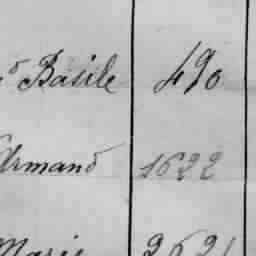 d Basile 490
Armand 1622
Marie 2621